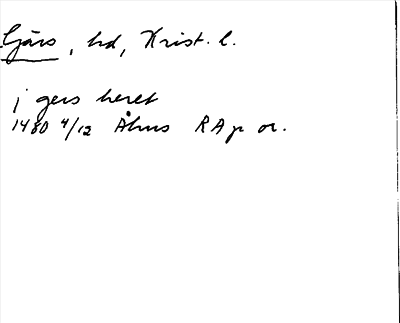 Gärs, hd, Krist. l.
j gers heret
1480 4/12 Åhus RAp or.